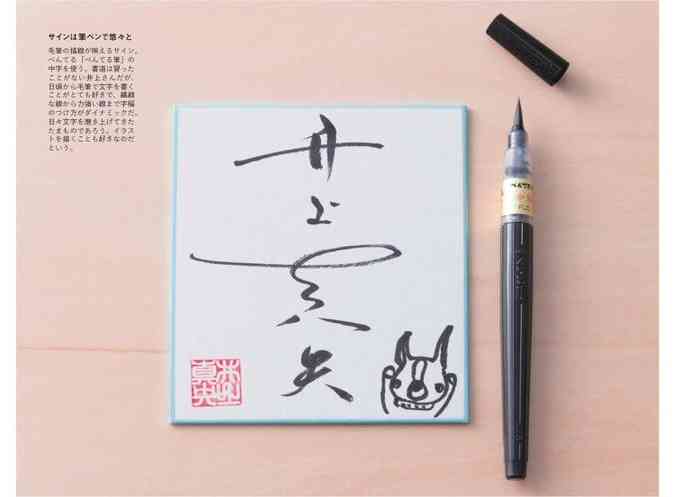 サインは筆ペンで悠々と
毛筆の描線が映えるサイン。
ぺんてる「ぺんてる筆」の
中字を使う。書道は習った
ことがない井上さんだが、
日頃から毛筆で文字を書く
ことがとても好きで、繊細
な線から力強い線まで字幅
のつけ方がダイナミックだ。
日々文字を磨き上げてきた
たまものであろう。イラス
トを描くことも好きなのだ
という。
井上真央
井上
真央